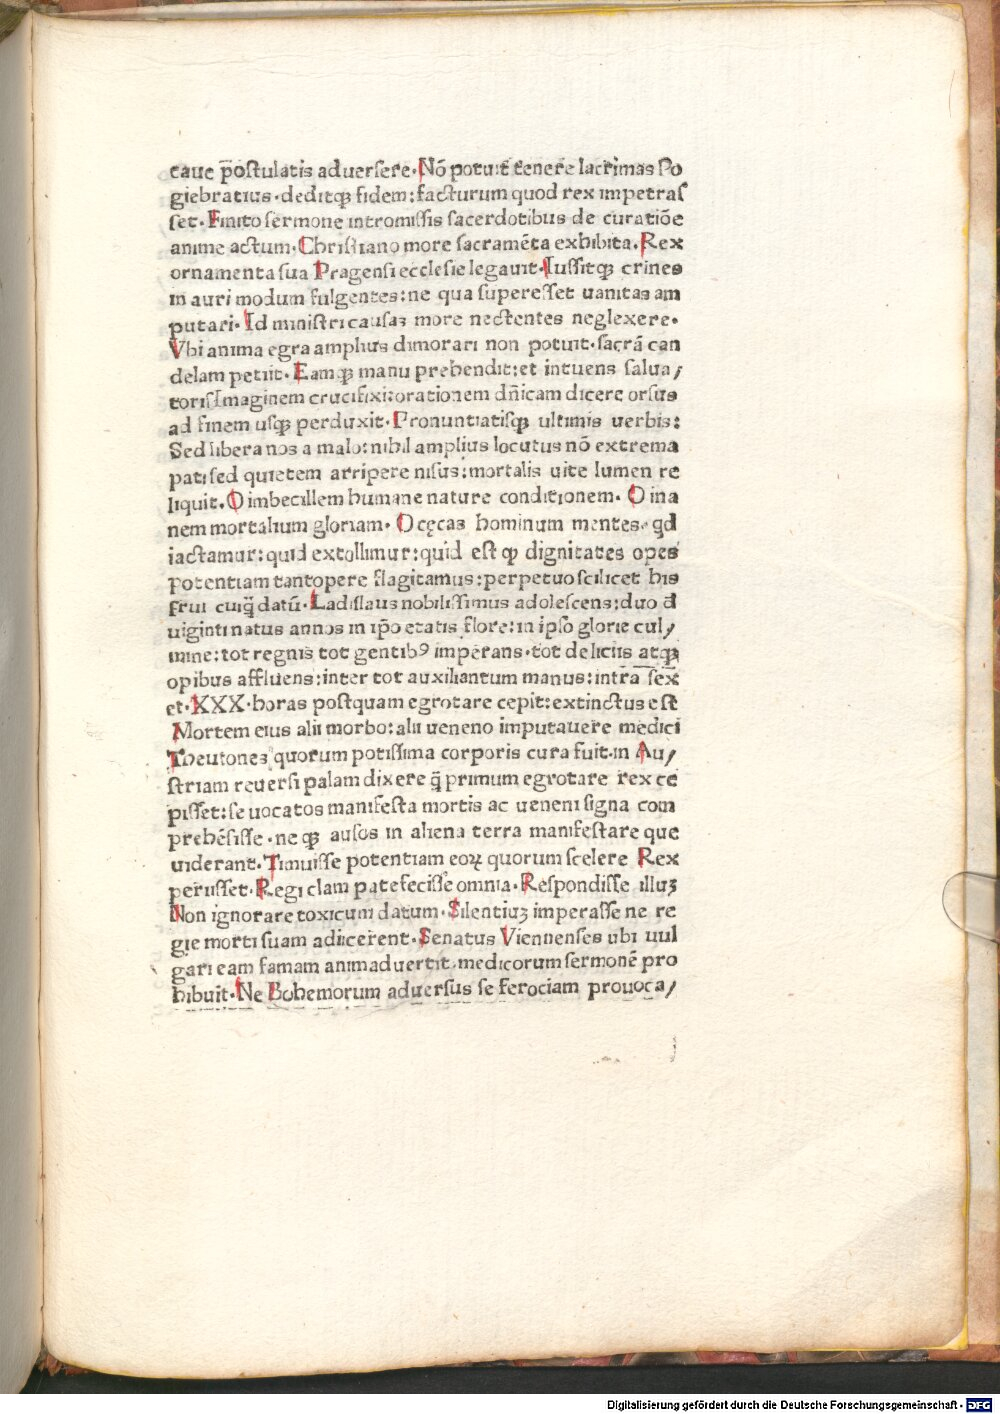 caue p̄ostulatis aduersere·Nō potuit tenere lacrimas Po
giebratius·deditqꝫ fidem:facturum quod rex impetraſ
ſet·Finito ſermone intromiſſis ſacerdotibus de curatiōe
anime actum·Chriſtiano more ſacramēta exhibita·Rex
ornamenta ſua Pragenſi eccleſie legauit·Iuſſitqꝫ crines
in auri modum fulgentes:ne qua ſupereſſet uanitas am
putari·Id miniſtri cauſaꝫ more nectentes neglexere·
Vbi anima egra amplius dimorari non potuit·ſacrā can
delam petiit·Eamqꝫ manu prehendit:et intuens ſalua/
toriſ Imaginem crucifixi:orationem dn̄icam dicere orſus
ad finem uſqꝫ perduxit·Pronuntiatiſqꝫ ultimis uerbis:
Sed libera nos a malo:nihil amplius locutus nō extrema
pati ſed quietem arripere niſus:mortalis uite lumen re
liquit·O imbecillem humane nature conditionem·O ina
nem mortalium gloriam·O cęcas hominum mentes·qd
iactamur:quid extollimur:quid eſt ꝙ dignitates opes
potentiam tantopere flagitamus:perpetuo ſcilicet his
frui cuiq̄ datū·Ladiſlaus nobiliſſimus adoleſcens:duo đ
uiginti natus annos in ip̄o etatis flore:in ipſo glorie cul/
mine:tot regnis tot gentibꝰ imperans·tot deliciis atqꝫ
opibus affluens:inter tot auxiliantum manus:intra ſex
et·XXX·horas poſtquam egrotare cepit:extinctus eſt
Mortem eius alii morbo:alii ueneno imputauere medici
Theutones quorum potiſſima corporis cura fuit·in Au/
ſtriam reuerſi palam dixere q̄ primum egrotare rex ce
piſſet:ſe uocatos manifeſta mortis ac ueneni ſigna com
prehēſiſſe·neqꝫ auſos in aliena terra manifeſtare que
uiderant·Timuiſſe potentiam eoꝝ quorum ſcelere Rex
periiſſet·Regi clam patefeciſſe omnia·Reſpondiſſe illuꝫ
Non ignorare toxicum datum·Silentiuꝫ imperaſſe ne re
gie morti ſuam adiicerent·Senatus Viennenſes ubi uul
gari eam famam animaduertit·medicorum ſermonē pro
hibuit·Ne Bohemorum aduerſus ſe ferociam prouoca/
Digitalisierung gefördert durch die Deutsche Forschungsgemeinschaft - DFG